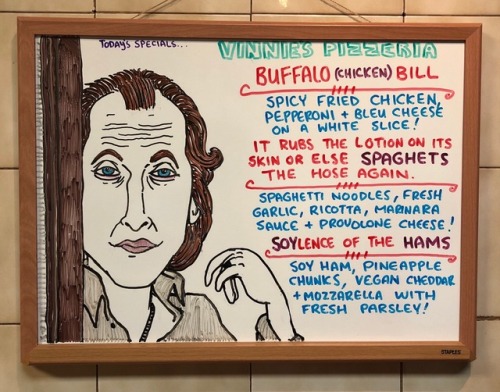 TODAY'S SPECIALS...
VINNIE'S PIZZERIA
BUFFALO (CHICKEN) BILL
SPICY FRIED CHICKEN,
PEPPERONI + BLEU CHEESE
ON A WHITE SLICE!
IT RUBS THE LOTION ON ITS
SKIN OR ELSE SPAGHETS
THE HOSE AGAIN.
SPAGHETTI NOODLES, FRESH
GARLIC, RICOTTA, MARINARA
SAUCE + PROVOLONE CHEESE!
SOYLENCE OF THE HAMS
SOY HAM, PINEAPPLE
CHUNKS, VEGAN CHEDDAR
+ MOZZARELLA WITH
FRESH PARSLEY!
STAPLES